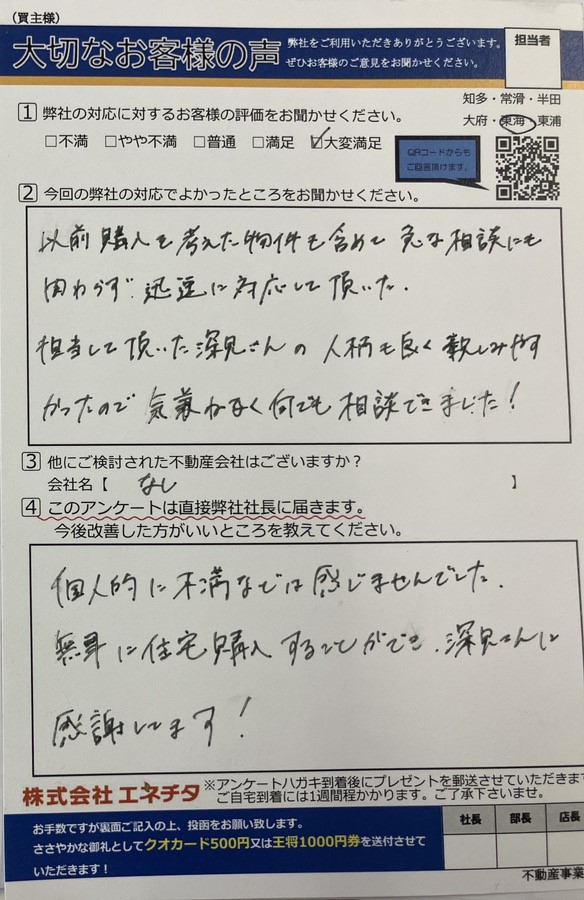 (買主様)
大切なお客様の声
弊社をご利用いただきありがとうございます。
ぜひお客様のご意見をお聞かせください。
担当者
知多・常滑・半田
大府・東海・東浦
1 弊社の対応に対するお客様の評価をお聞かせください。
□不満 □やや不満 □普通 □満足 ☑大変満足
QRコードからも
ご回答頂けます。
2 今回の弊社の対応でよかったところをお聞かせください。
以前購入を考えた物件も含めて急な相談にも
関わらず、迅速に対応して頂いた。
担当して頂いた深見さんの人柄も良く親しみやす
かったので気兼ねなく何でも相談できました!
3 他にご検討された不動産会社はございますか?
会社名【 なし 】
4 このアンケートは直接弊社社長に届きます。
今後改善した方がいいところを教えてください。
個人的に不満などは感じませんでした。
無事に住宅購入することができ、深見さんに
感謝してます!
株式会社 エネチタ
※アンケートハガキ到着後にプレゼントを郵送させていただきます
ご自宅到着には1週間程かかります。ご了承下さいませ。
お手数ですが裏面ご記入の上、投函をお願い致します。
ささやかな御礼としてクオカード500円又は王将1000円券を送付させて
いただきます!
社長 部長 店長
不動産事業